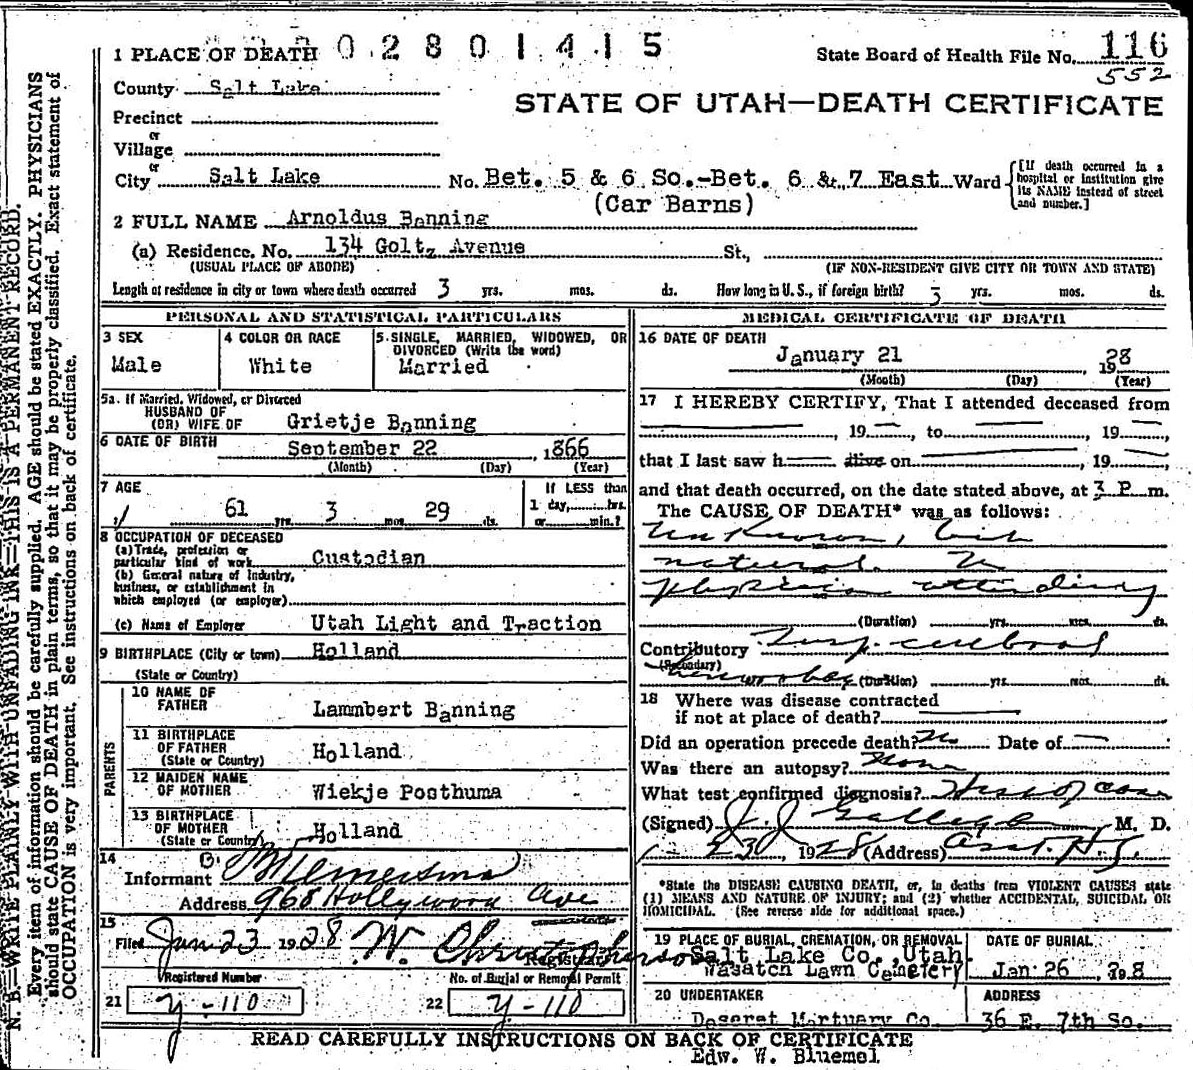 1 PLACE OF DEATH 0 2 8 0 1 4 1 5
State Board of Health File No. 116
552
County Salt Lake
STATE OF UTAH—DEATH CERTIFICATE
Precinct
or
Village
or
City Salt Lake No. Bet. 5 & 6 So.-Bet. 6 & 7 East Ward
(Car Barns)
[If death occurred in a
hospital or institution give
its NAME instead of street
and number.]
2 FULL NAME Arnoldus Banning
(a) Residence, No. 134 Goltz Avenue St.,
(USUAL PLACE OF ABODE) (IF NON-RESIDENT GIVE CITY OR TOWN AND STATE)
Length of residence in city or town where death occurred 3 yrs. mos. ds. How long in U. S., if foreign birth? 3 yrs. mos. ds.
PERSONAL AND STATISTICAL PARTICULARS
3 SEX
Male
4 COLOR OR RACE
White
5 SINGLE, MARRIED, WIDOWED, OR
DIVORCED (Write the word)
Married
5a. If Married, Widowed, or Divorced
HUSBAND OF
(OR) WIFE OF Grietje Banning
6 DATE OF BIRTH September 22, 1866
(Month) (Day) (Year)
7 AGE
61 yrs. 3 mos. 29 ds.
If LESS than
1 day, hrs.
or min.?
8 OCCUPATION OF DECEASED
(a) Trade, profession or
particular kind of work Custodian
(b) General nature of Industry,
business, or establishment in
which employed (or employer)
(c) Name of Employer Utah Light and Traction
9 BIRTHPLACE (City or town) Holland
(State or Country)
PARENTS
10 NAME OF
FATHER Lammbert Banning
11 BIRTHPLACE
OF FATHER Holland
(State or Country)
12 MAIDEN NAME
OF MOTHER Wiekje Posthuma
13 BIRTHPLACE
OF MOTHER Holland
(State or Country)
14
Informant
Address 968 Hollywood Ave
15
Filed Jan 23 1928 W. Christopherson
Registrar
Registered Number No. of Burial or Removal Permit
21 y-110 22 y-110
MEDICAL CERTIFICATE OF DEATH
16 DATE OF DEATH
January 21 1928
(Month) (Day) (Year)
17 I HEREBY CERTIFY, That I attended deceased from
, 19 , to , 19 ,
that I last saw h alive on , 19 ,
and that death occurred, on the date stated above, at 3 P. m.
The CAUSE OF DEATH* was as follows:
Unknown, but
natural. No
physician attending
(Duration) yrs. mos. ds.
Contributory cerebral
(Secondary) (Duration) yrs. mos. ds.
18 Where was disease contracted
if not at place of death?
Did an operation precede death? No Date of
Was there an autopsy? None
What test confirmed diagnosis? Hist of case
(Signed) J. J. Galligan, M. D.
1-23, 1928 (Address) Asst. H.
*State the DISEASE CAUSING DEATH, or, in deaths from VIOLENT CAUSES state
(1) MEANS AND NATURE OF INJURY; and (2) whether ACCIDENTAL, SUICIDAL OR
HOMICIDAL. (See reverse side for additional space.)
19 PLACE OF BURIAL, CREMATION, OR REMOVAL
Salt Lake Co., Utah.
Wasatch Lawn Cemetery
DATE OF BURIAL
Jan 26, 28
20 UNDERTAKER
Deseret Mortuary Co.
ADDRESS
36 E. 7th So.
READ CAREFULLY INSTRUCTIONS ON BACK OF CERTIFICATE
Edw. W. Bluemel
N. B.—WRITE PLAINLY WITH UNFADING INK—THIS IS A PERMANENT RECORD.
Every item of information should be carefully supplied. AGE should be stated EXACTLY. PHYSICIANS
should state CAUSE OF DEATH in plain terms, so that it may be properly classified. Exact statement of
OCCUPATION is very important. See instructions on back of certificate.